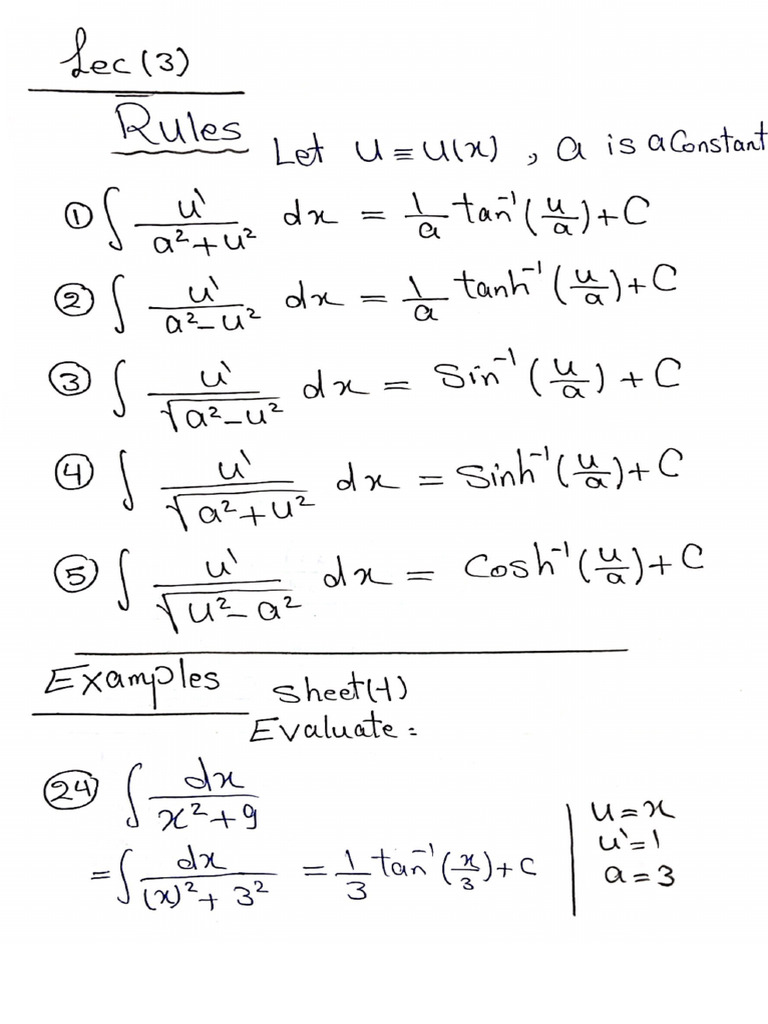 Lec (3)
Rules
Let u ≡ u(x) , a is a Constant
① ∫ u' / (a² + u²) dx = 1/a tan⁻¹ (u/a) + C
② ∫ u' / (a² - u²) dx = 1/a tanh⁻¹ (u/a) + C
③ ∫ u' / √(a² - u²) dx = Sin⁻¹ (u/a) + C
④ ∫ u' / √(a² + u²) dx = Sinh⁻¹ (u/a) + C
⑤ ∫ u' / √(u² - a²) dx = Cosh⁻¹ (u/a) + C
Examples sheet(1)
Evaluate :
㉔ ∫ dx / (x² + 9)
= ∫ dx / ((x)² + 3²) = 1/3 tan⁻¹ (x/3) + C
u = x
u' = 1
a = 3